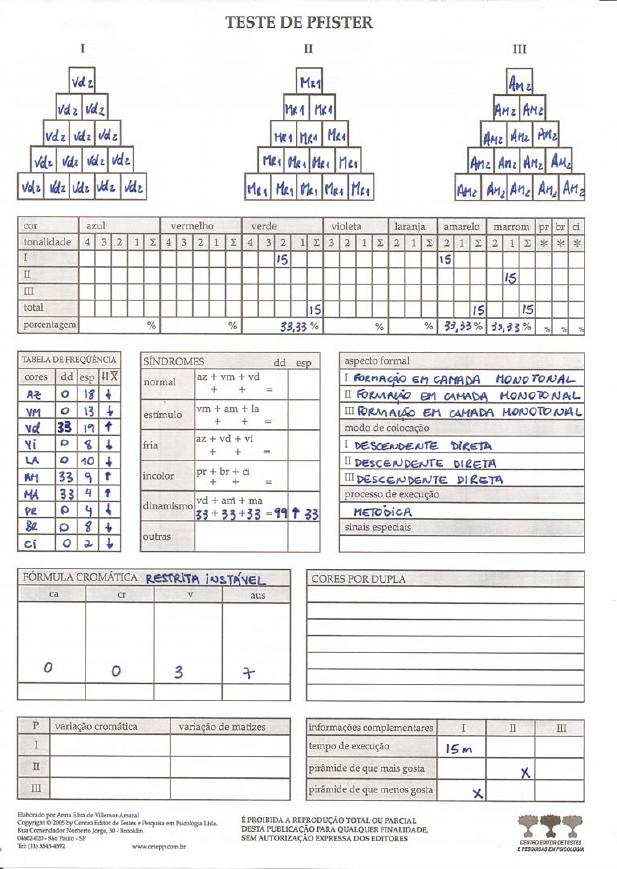 TESTE DE PFISTER
I II III
Vd2 MR1 AM2
Vd2 Vd2 MR1 MR1 AM2 AM2
Vd2 Vd2 Vd2 MR1 MR1 MR1 AM2 AM2 AM2
Vd2 Vd2 Vd2 Vd2 MR1 MR1 MR1 MR1 AM2 AM2 AM2 AM2
Vd2 Vd2 Vd2 Vd2 Vd2 MR1 MR1 MR1 MR1 MR1 AM2 AM2 AM2 AM2 AM2
cor azul vermelho verde violeta laranja amarelo marrom pr br ci
tonalidade 4 3 2 1 Σ 4 3 2 1 Σ 4 3 2 1 Σ 3 2 1 Σ 2 1 Σ 2 1 Σ 2 1 Σ * * *
I 15 15
II 15
III
total 15 15 15
porcentagem % % 33,33 % % % 33,33 % 33,33 % % % %
TABELA DE FREQÜÊNCIA
cores dd esp
AZ 0 18 ↓
VM 0 13 ↓
Vd 33 19 ↑
Vi 0 8 ↓
LA 0 10 ↓
AM 33 9 ↑
MA 33 4 ↑
PR 0 4 ↓
BR 0 8 ↓
Ci 0 2 ↓
SÍNDROMES dd esp
normal az + vm + vd
+ + =
estímulo vm + am + la
+ + =
fria az + vd + vi
+ + =
incolor pr + br + ci
+ + =
dinamismo vd + am + ma
33 + 33 + 33 = 99 ↑ 33
outras
aspecto formal
I FORMAÇÃO EM CAMADA MONOTONAL
II FORMAÇÃO EM CAMADA MONOTONAL
III FORMAÇÃO EM CAMADA MONOTONAL
modo de colocação
I DESCENDENTE DIRETA
II DESCENDENTE DIRETA
III DESCENDENTE DIRETA
processo de execução
METÓDICA
sinais especiais
FÓRMULA CROMÁTICA RESTRITA INSTÁVEL
ca cr v aus
0 0 3 7
CORES POR DUPLA
P variação cromática variação de matizes
I
II
III
informações complementares I II III
tempo de execução 15m
pirâmide de que mais gosta X
pirâmide de que menos gosta X
Elaborado por Anna Elisa de Villemor-Amaral
Copyright © 2005 by Centro Editor de Testes e Pesquisa em Psicologia Ltda.
Rua Comendador Norberto Jorge, 30 - Brooklin
04602-020 - São Paulo - SP
Tel: (11) 5543-4592 www.cetepp.com.br
É PROIBIDA A REPRODUÇÃO TOTAL OU PARCIAL
DESTA PUBLICAÇÃO PARA QUALQUER FINALIDADE,
SEM AUTORIZAÇÃO EXPRESSA DOS EDITORES
CENTRO EDITOR DE TESTES
E PESQUISAS EM PSICOLOGIA